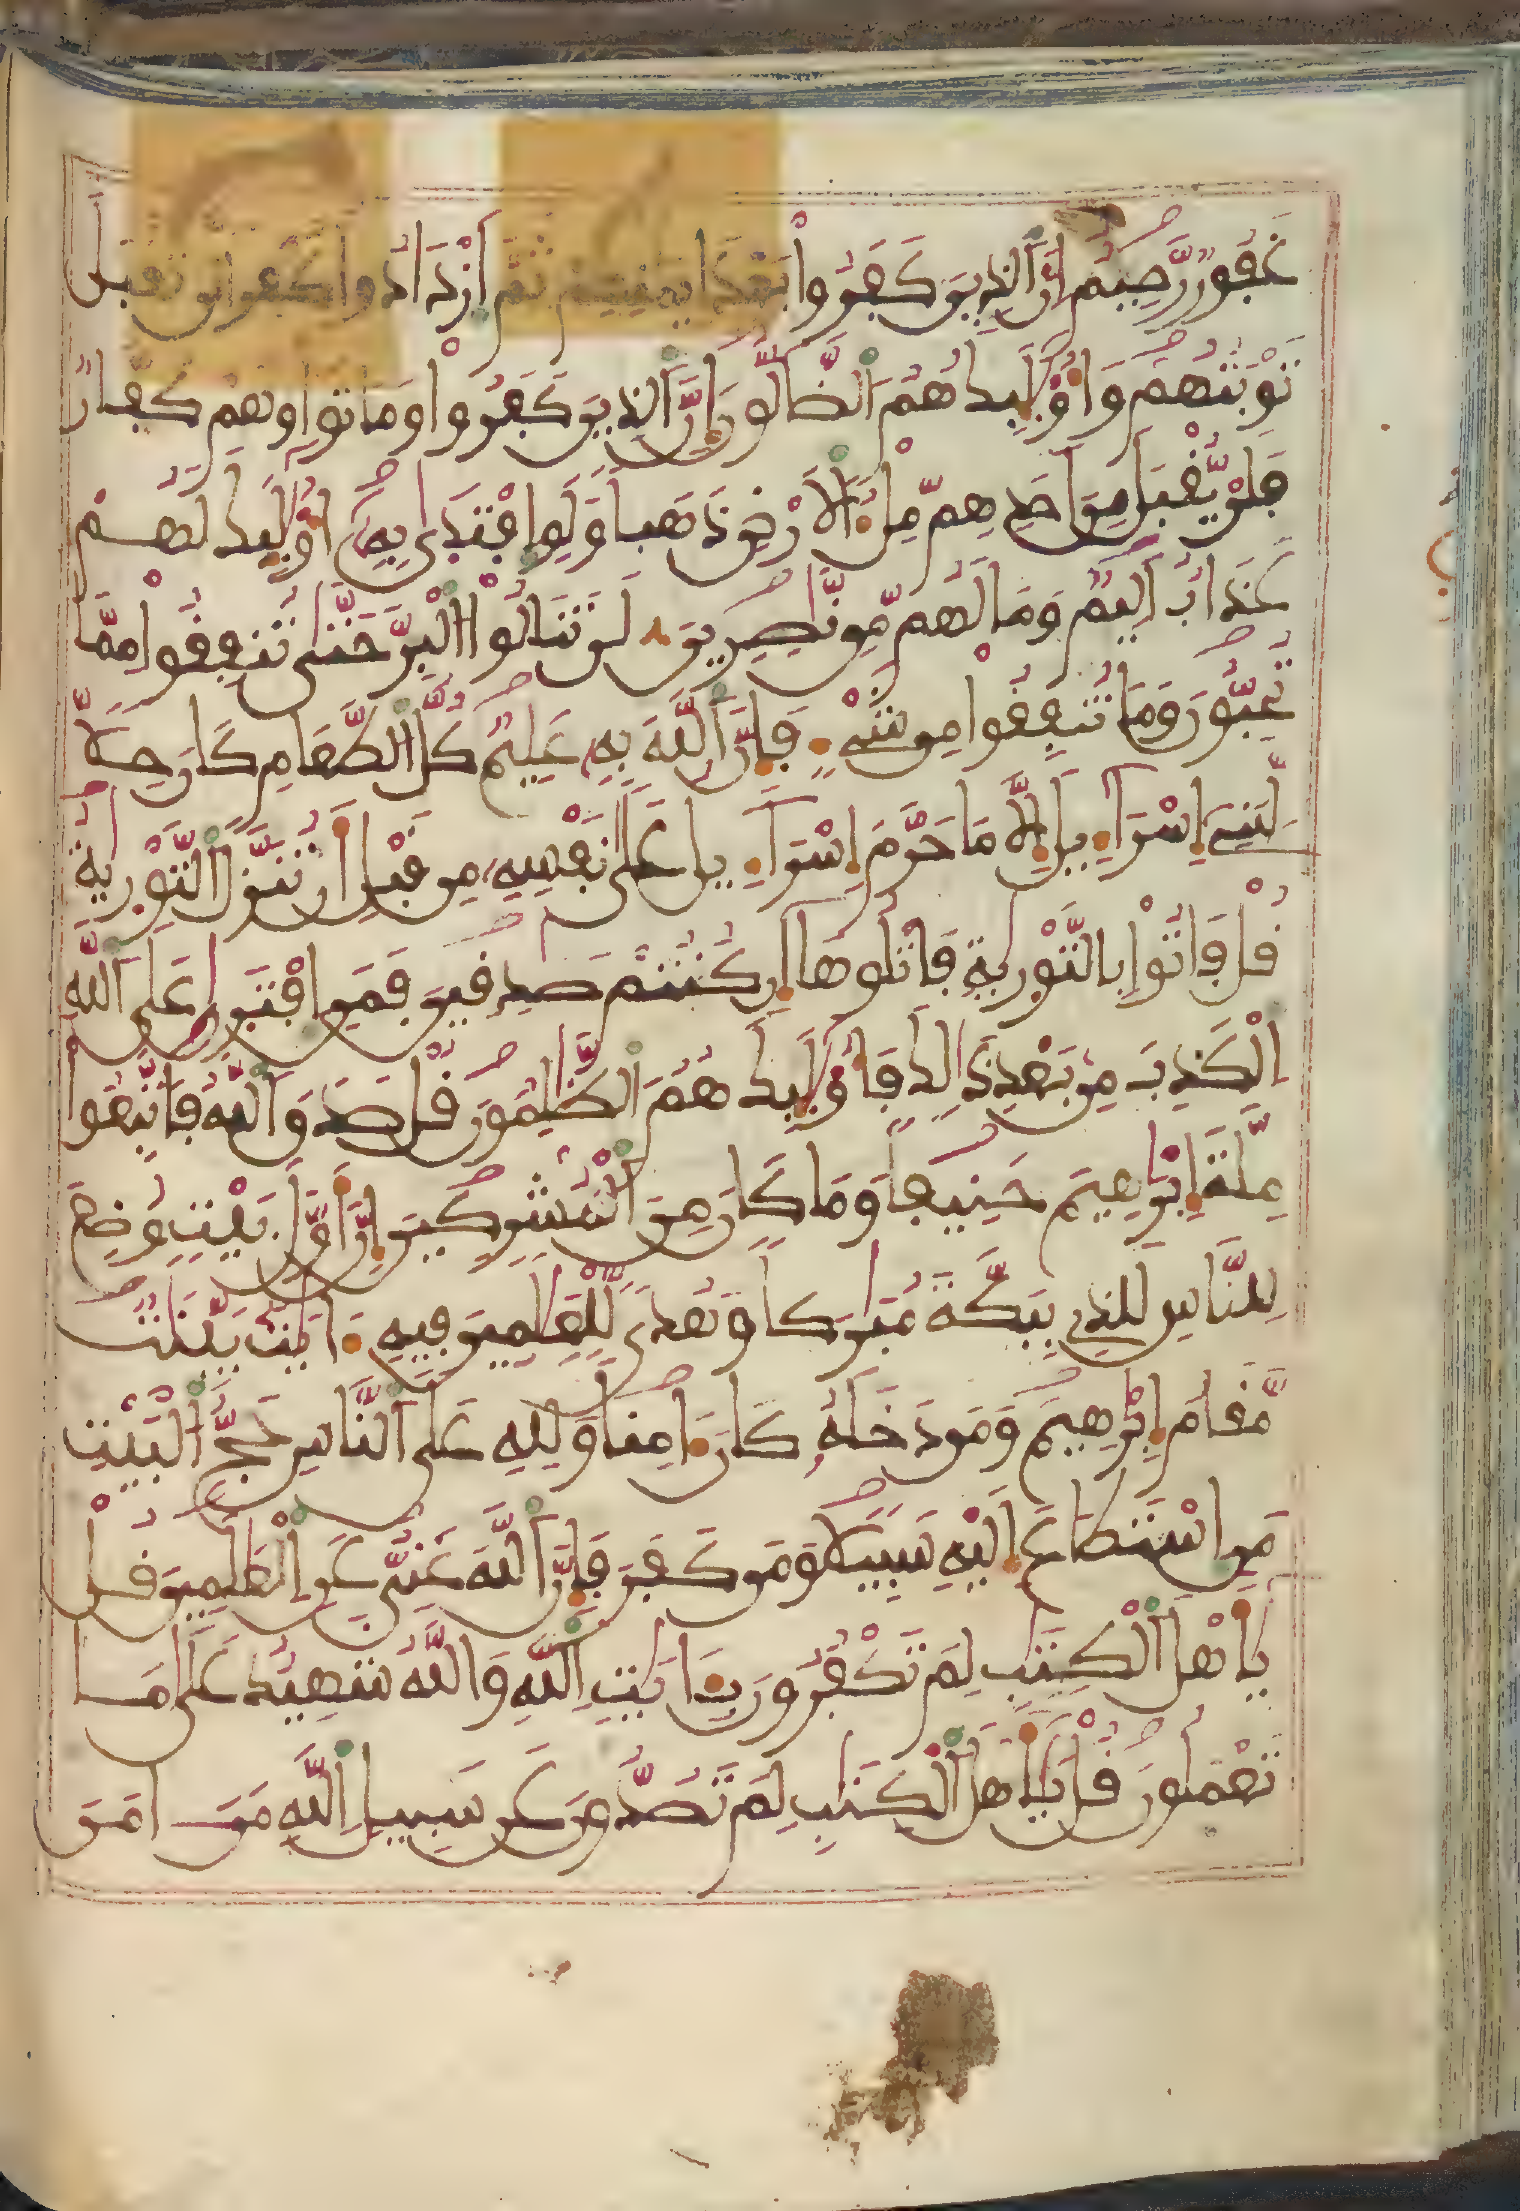 غَفُورٌ رَّحِيمٌ إِنَّ الَّذِينَ كَفَرُوا بَعْدَ إِيمَٰنِهِمْ ثُمَّ ازْدَادُوا كُفْرًا لَّن تُقْبَلَ
تَوْبَتُهُمْ وَأُوْلَٰئِكَ هُمُ الضَّالُّونَ إِنَّ الَّذِينَ كَفَرُوا وَمَاتُوا وَهُمْ كُفَّارٌ
فَلَنْ يُّقْبَلَ مِنَ احَدِهِم مِّلْءُ الَارْضِ ذَهَبًا وَلَوِ افْتَدَىٰ بِهِ أُوْلَٰئِكَ لَهُمْ
عَذَابٌ اَلِيمٌ وَمَا لَهُم مِّن نَّٰصِرِينَ لَن تَنَالُوا الْبِرَّ حَتَّىٰ تُنفِقُوا مِمَّا
تُحِبُّونَ وَمَا تُنفِقُوا مِن شَيْءٍ فَإِنَّ اللَّهَ بِهِ عَلِيمٌ كُلُّ الطَّعَامِ كَانَ حِلًّا
لِّبَنِي إِسْرَآءِيلَ إِلَّا مَا حَرَّمَ إِسْرَآءِيلُ عَلَىٰ نَفْسِهِ مِن قَبْلِ أَن تُنَزَّلَ التَّوْرَىٰةُ
قُلْ فَاتُوا بِالتَّوْرَىٰةِ فَاتْلُوهَا إِن كُنتُمْ صَٰدِقِينَ فَمَنِ افْتَرَىٰ عَلَى اللَّهِ
الْكَذِبَ مِنۢ بَعْدِ ذَٰلِكَ فَأُوْلَٰئِكَ هُمُ الظَّٰلِمُونَ قُلْ صَدَقَ اللَّهُ فَاتَّبِعُوا
مِلَّةَ إِبْرَٰهِيمَ حَنِيفًا وَمَا كَانَ مِنَ الْمُشْرِكِينَ إِنَّ أَوَّلَ بَيْتٍ وُضِعَ
لِلنَّاسِ لَلَّذِي بِبَكَّةَ مُبَٰرَكًا وَهُدًى لِّلْعَٰلَمِينَ فِيهِ ءَايَٰتٌۢ بَيِّنَٰتٌ
مَّقَامُ إِبْرَٰهِيمَ وَمَن دَخَلَهُ كَانَ ءَامِنًا وَلِلَّهِ عَلَى النَّاسِ حَجُّ الْبَيْتِ
مَنِ اسْتَطَاعَ إِلَيْهِ سَبِيلًا وَمَن كَفَرَ فَإِنَّ اللَّهَ غَنِيٌّ عَنِ الْعَٰلَمِينَ قُلْ
يَٰأَهْلَ الْكِتَٰبِ لِمَ تَكْفُرُونَ بِـَٔايَٰتِ اللَّهِ وَاللَّهُ شَهِيدٌ عَلَىٰ مَا
تَعْمَلُونَ قُلْ يَٰأَهْلَ الْكِتَٰبِ لِمَ تَصُدُّونَ عَن سَبِيلِ اللَّهِ مَنَ ـامَنَ